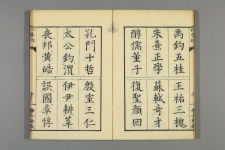 禹鈞五桂 王祐三槐
朱熹正學 蘇軾奇才
醇儒董子 復聖顏回
孔門十哲 殷室三仁
太公釣渭 伊尹耕莘
喪邦黃皓 誤國章惇